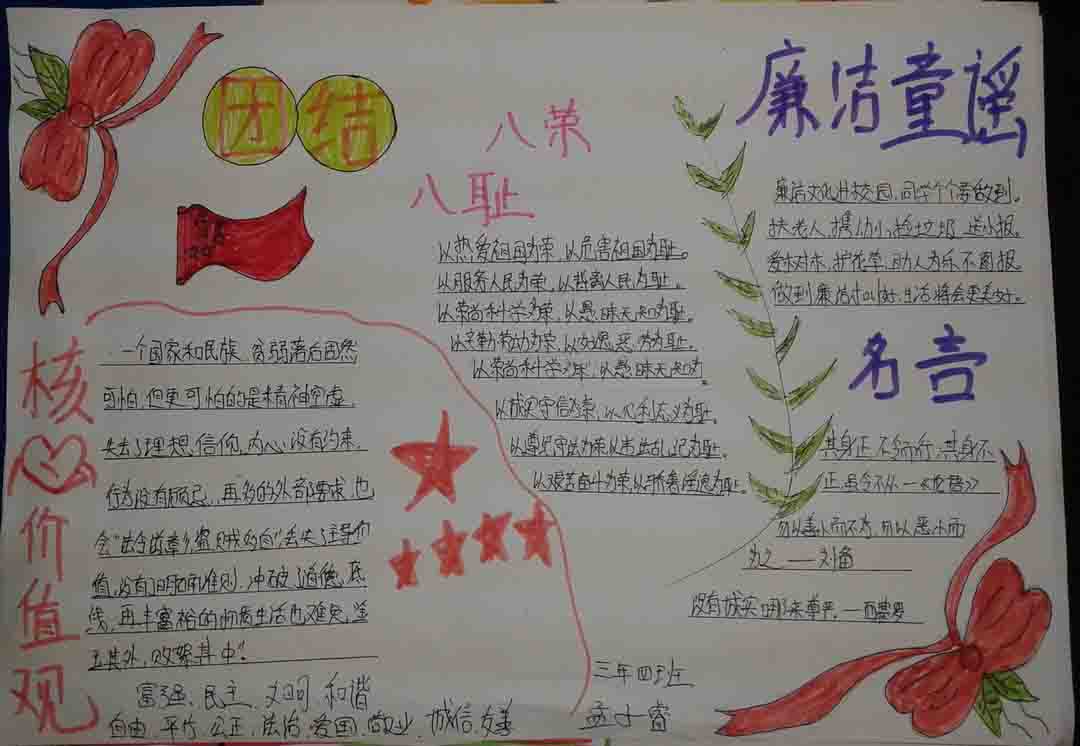 团结
核心价值观
一个国家和民族，贫弱落后固然
可怕，但更可怕的是精神空虚，
失去了理想信仰，内心没有约束，
行为没有顾忌，再多的外部要求，也
会"法令滋章，盗贼多有"丢失了主导价
值，没有了明确准则，冲破了道德底
线，再丰富裕的物质生活也难免，金
玉其外，败絮其中"。
富强、民主、文明、和谐
自由、平等、公正、法治、爱国、敬业、诚信、友善
八荣
八耻
以热爱祖国为荣，以危害祖国为耻。
以服务人民为荣，以背离人民为耻。
以崇尚科学为荣，以愚昧无知为耻。
以辛勤劳动为荣，以好逸恶劳为耻。
以崇尚科学为荣，以愚昧无知为。
以诚实守信为荣，以见利忘义为耻。
以遵纪守法为荣以违法乱记为耻。
以艰苦奋斗为荣以骄奢淫逸为耻。
三年四班
廉洁童谣
廉洁文化进校园，同学个个要做到。
扶老人，携幼小，捡垃圾，送小报。
爱树木，护花草，助人为乐不图报
做到廉洁，生活将会更美好。
名言
其身正，不令而行；其身不
正，虽令不从—《论语》
勿以善小而不为，勿以恶小而
为之——刘备
没有诚实哪来尊严。—西塞罗